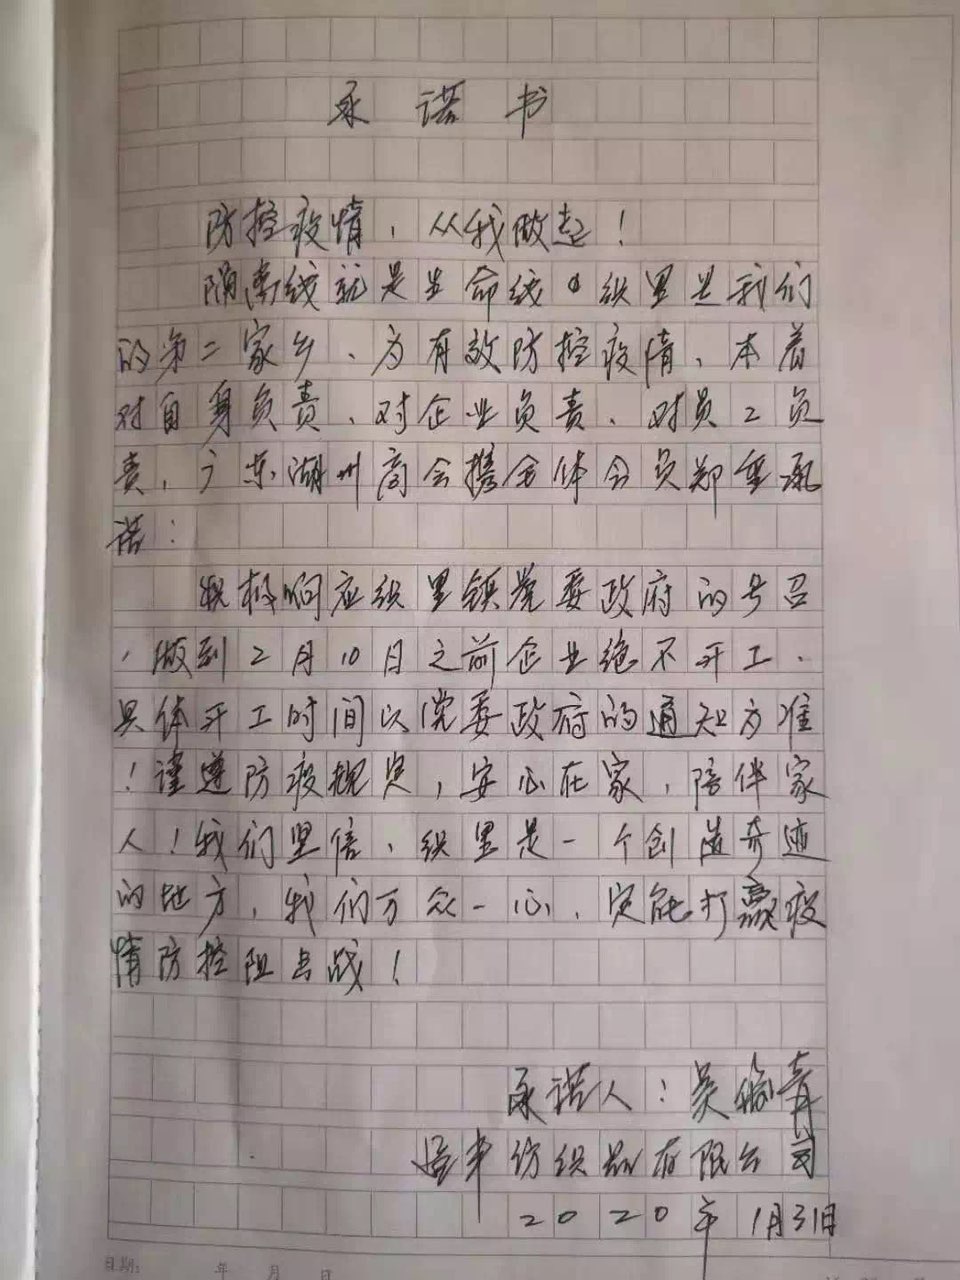 承诺书
防控疫情，从我做起！
隔离线就是生命线。织里是我们
的第二家乡、为有效防控疫情、本着
对自身负责、对企业负责、对员工负
责，广东湖州商会携全体会员郑重承
诺：
积极响应织里镇党委政府的号召
，做到2月10日之前企业绝不开工、
具体开工时间以党委政府的通知为准
！谨遵防疫规定，安心在家，陪伴家
人！我们坚信、织里是一个创造奇迹
的地方，我们万众一心、定能打赢疫
情防控阻击战！
承诺人：吴
纺织品有限公司
2020年1月31日
日期：　年　月　日